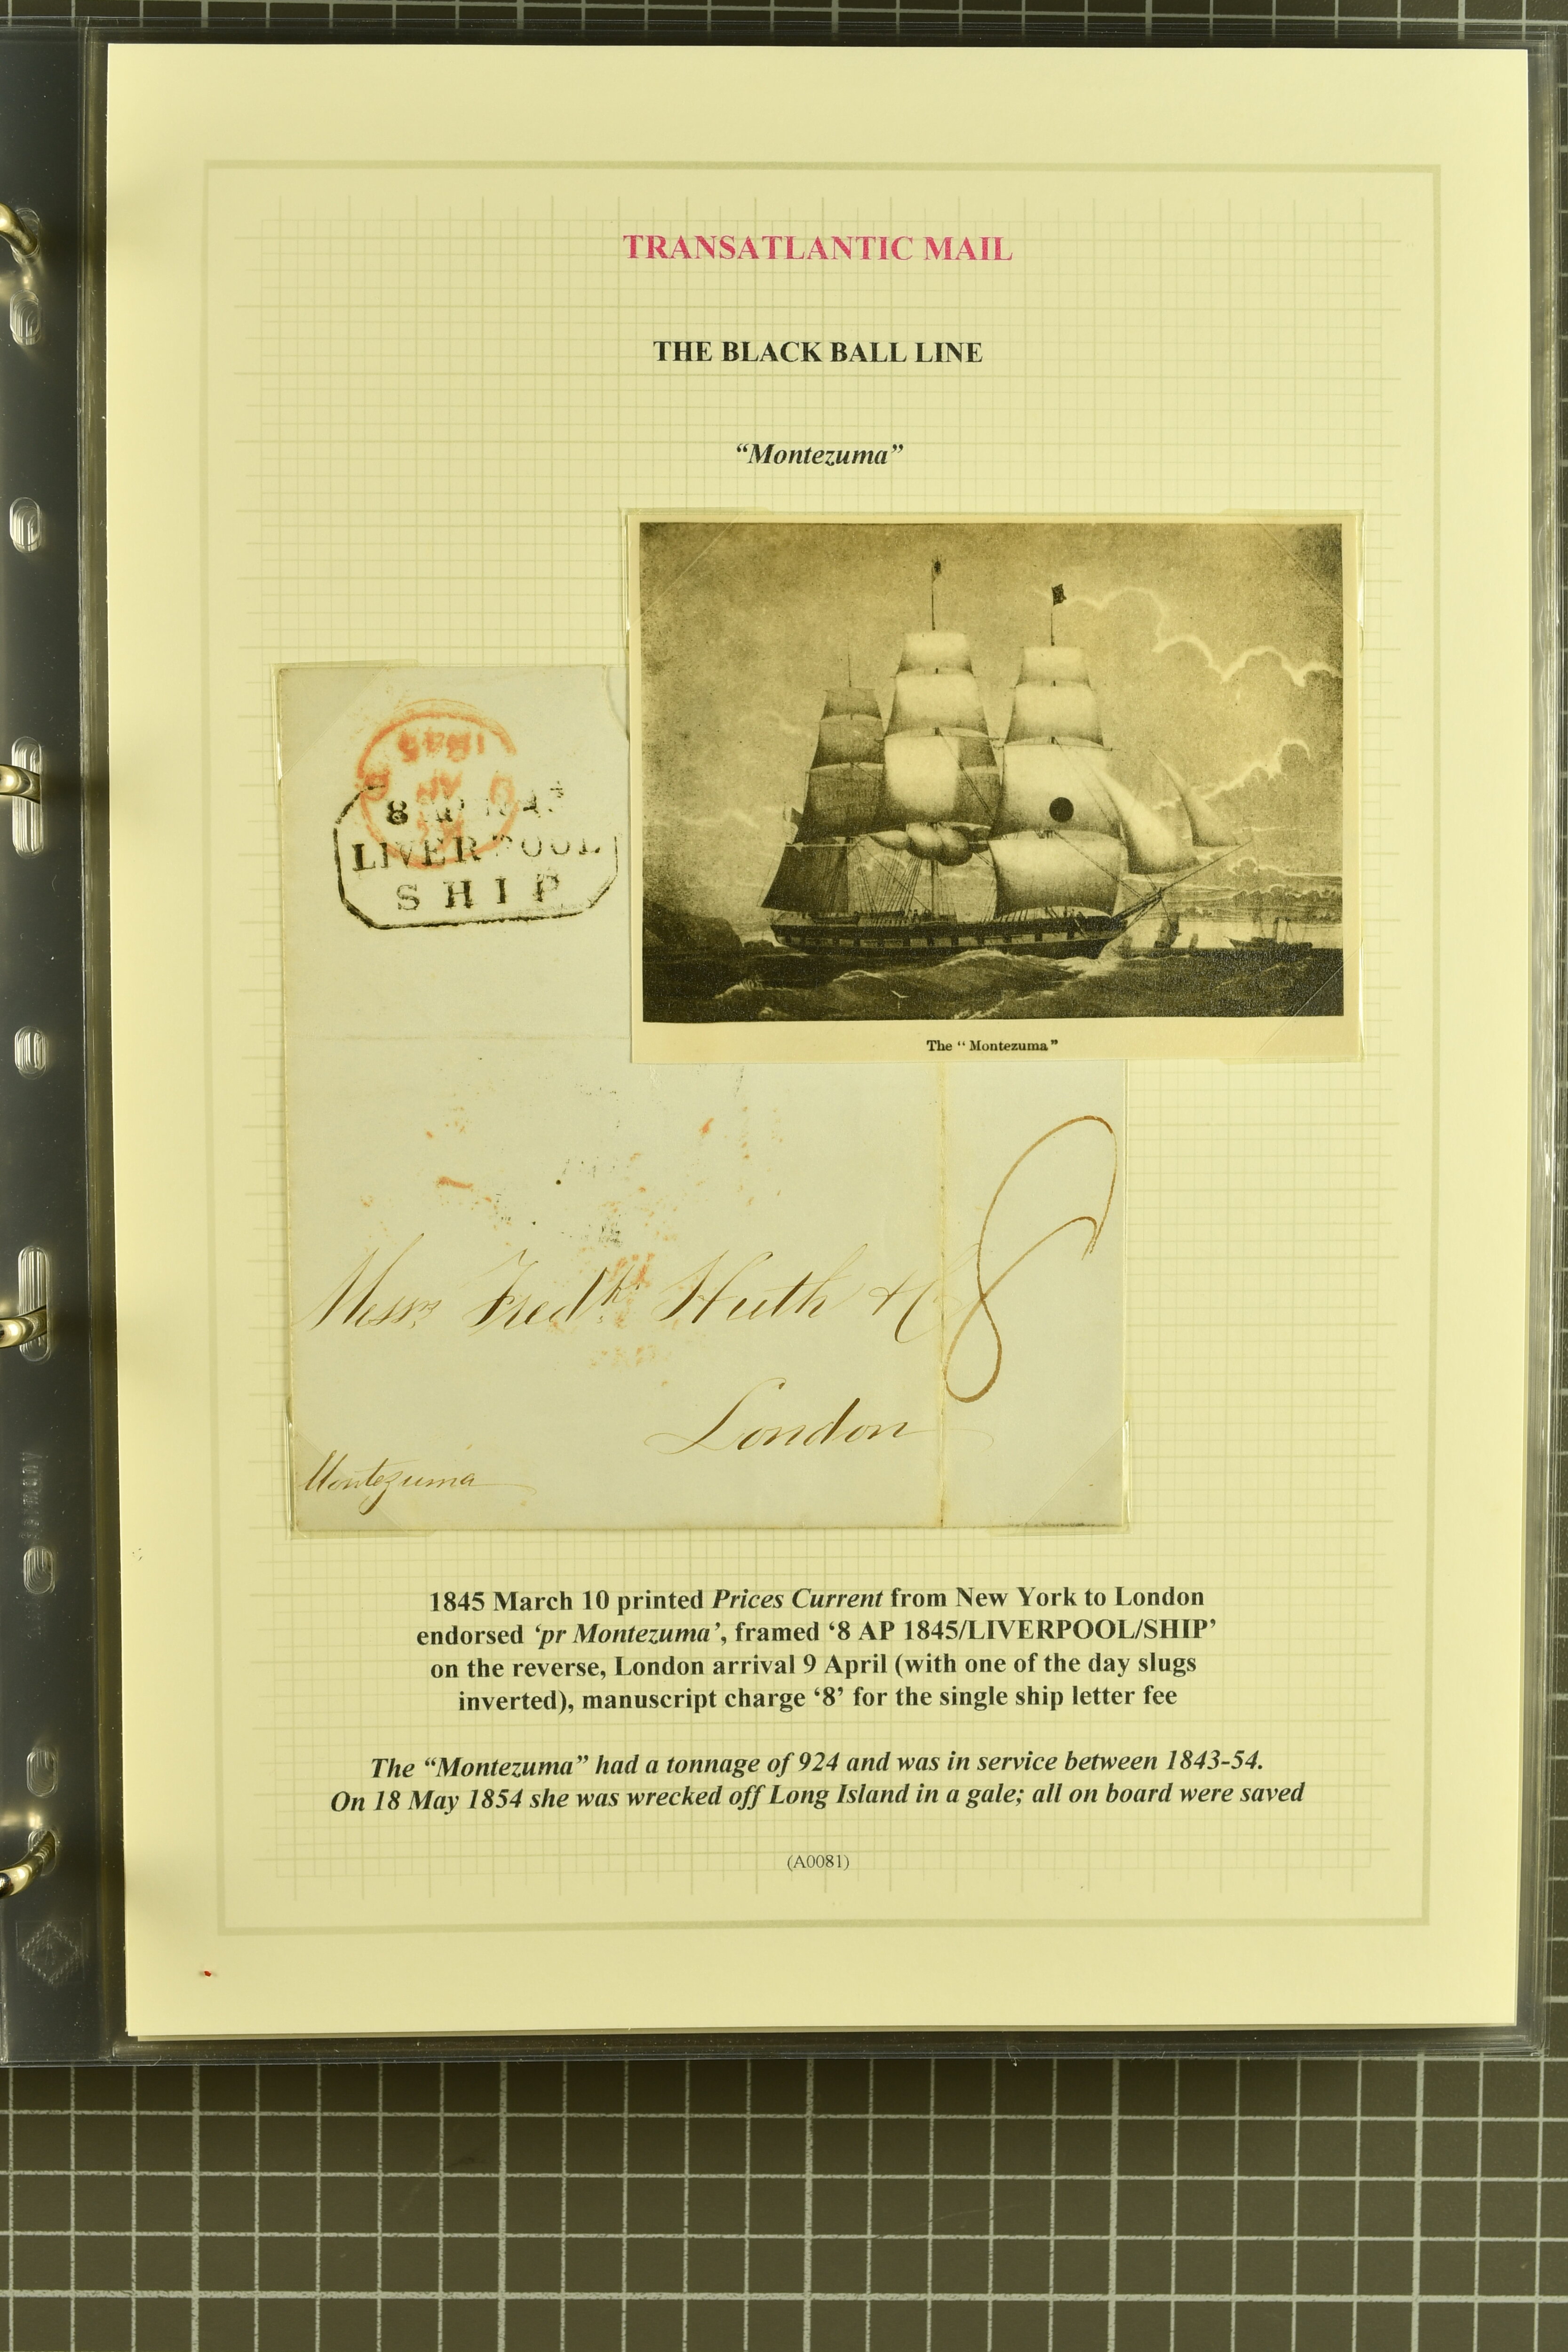 TRANSATLANTIC MAIL
THE BLACK BALL LINE
“Montezuma”
1845
AP
8 AP 1845
LIVERPOOL
SHIP
The “Montezuma”
8
Messrs Fredk Huth & Co
London
Montezuma
1845 March 10 printed Prices Current from New York to London
endorsed ‘pr Montezuma’, framed ‘8 AP 1845/LIVERPOOL/SHIP’
on the reverse, London arrival 9 April (with one of the day slugs
inverted), manuscript charge ‘8’ for the single ship letter fee
The “Montezuma” had a tonnage of 924 and was in service between 1843-54.
On 18 May 1854 she was wrecked off Long Island in a gale; all on board were saved
(A0081)